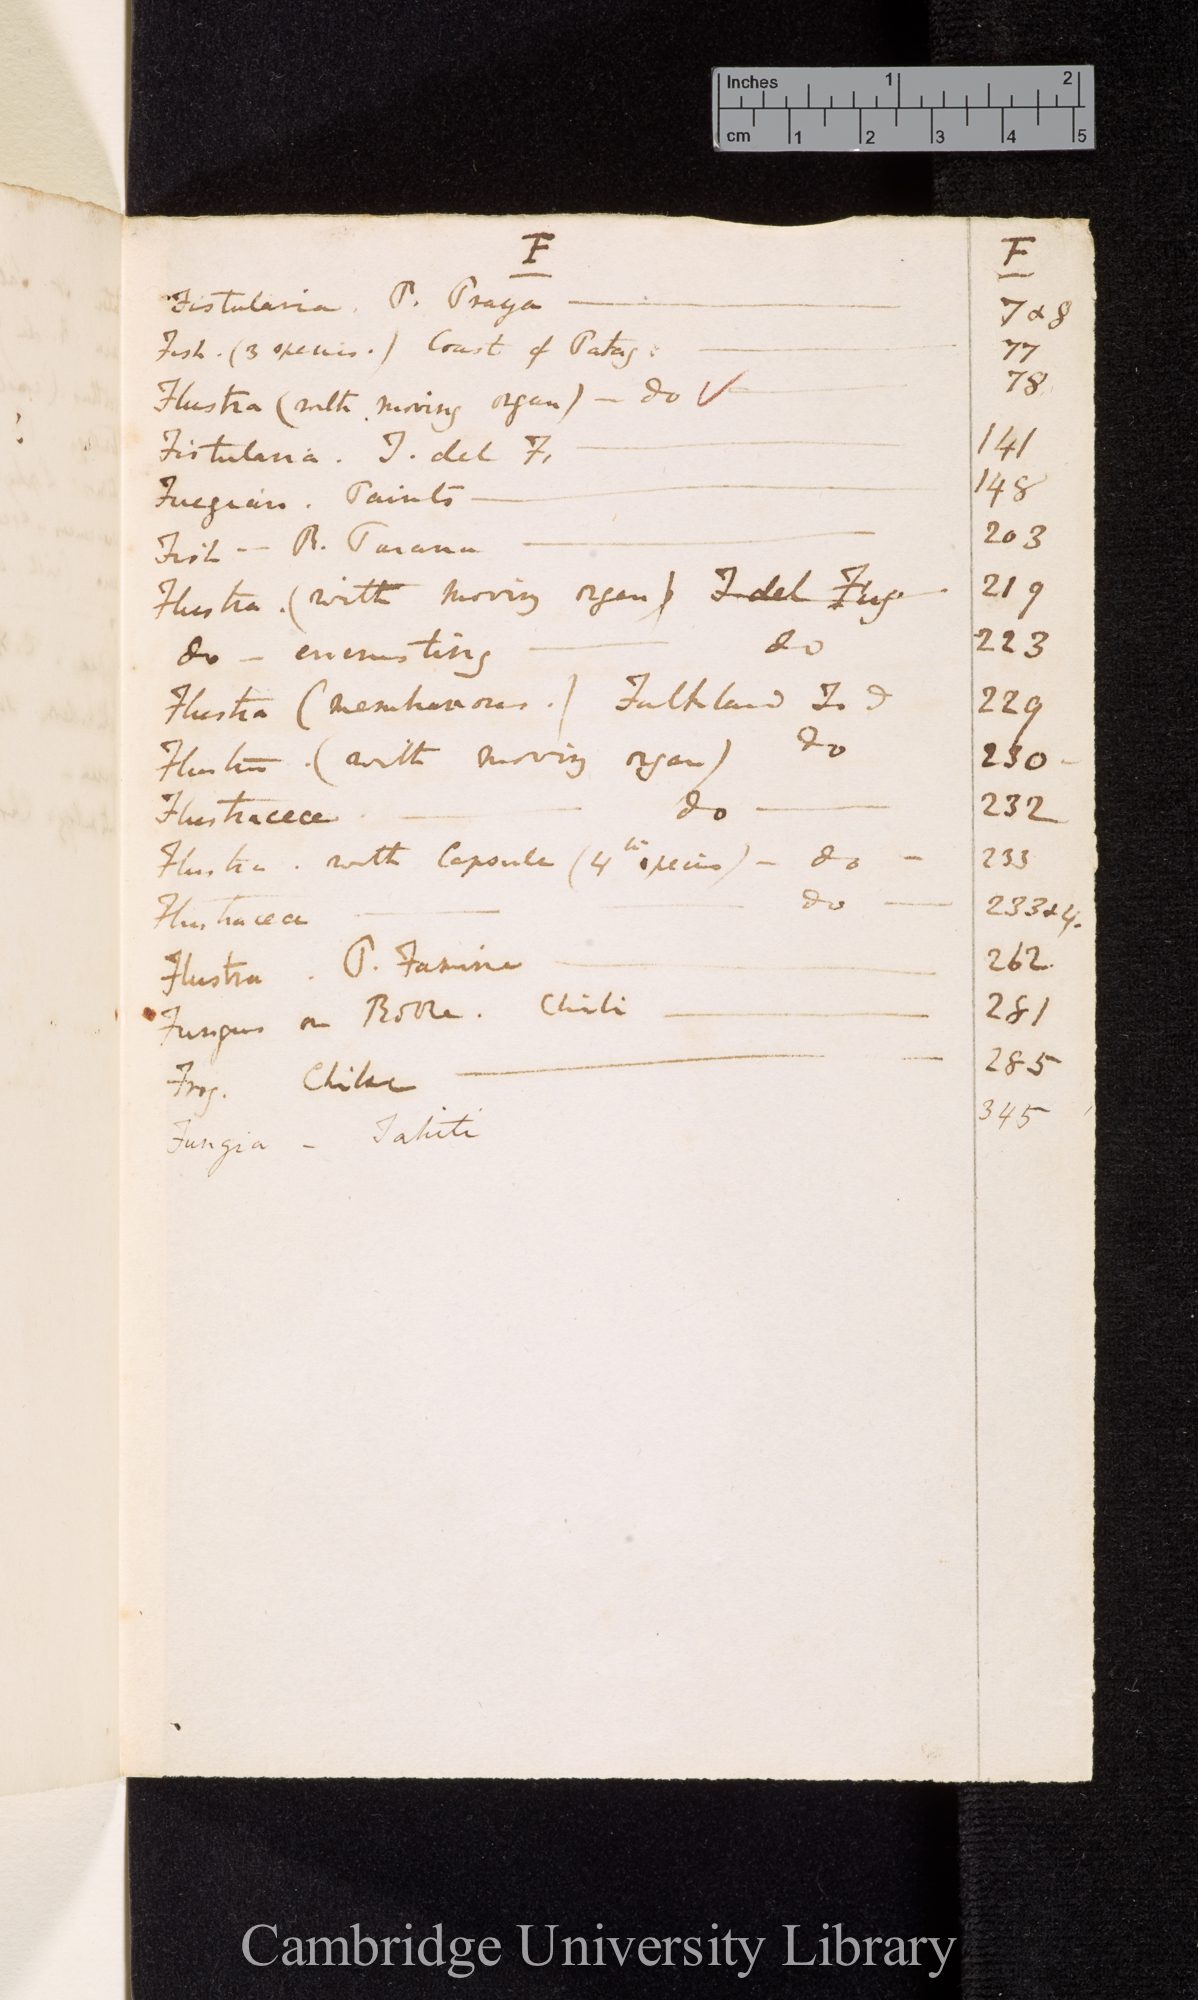 Inches 1 2
cm 1 2 3 4 5
F F
Fistularia. P. Praya — 7 & 8
Fish. (3 species.) Coast of Patag: — 77
Flustra (with moving organ) — do — 78
Fistularia. T. del F. — 141
Fuegian. Paints — 148
Fish — R. Parana — 203
Flustra. (with moving organ) T del Fueg — 219
do — encrusting — do 223
Flustra (membranous.) Falkland Is d 229
Flustra. (with moving organ) do 230 -
Flustraceæ — do — 232
Flustra. with Capsule (4th species) — do — 233
Flustraceæ — do — 233 & 4.
Flustra. P. Famine — 262.
Fungus on Roble. Chili — 281
Frog. Chiloe — 285
Fungia — Tahiti 345
Cambridge University Library